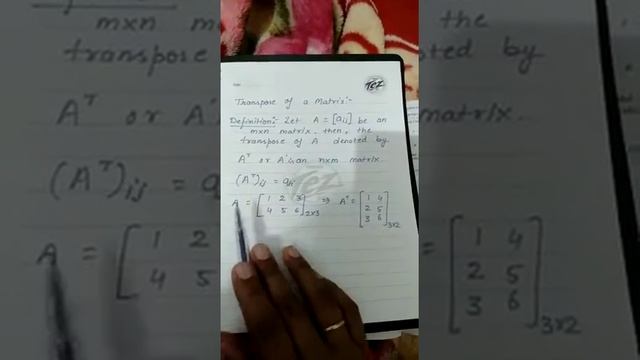 Tez
Transpose of a Matrix:-
Definition:- Let A = [aij] be an
mxn matrix. then, the
transpose of A denoted by
A^T or A' is an nxm matrix.
(A^T)ij = aji
A = [1 2 3; 4 5 6]2x3 ⇒ A^T = [1 4; 2 5; 3 6]3x2